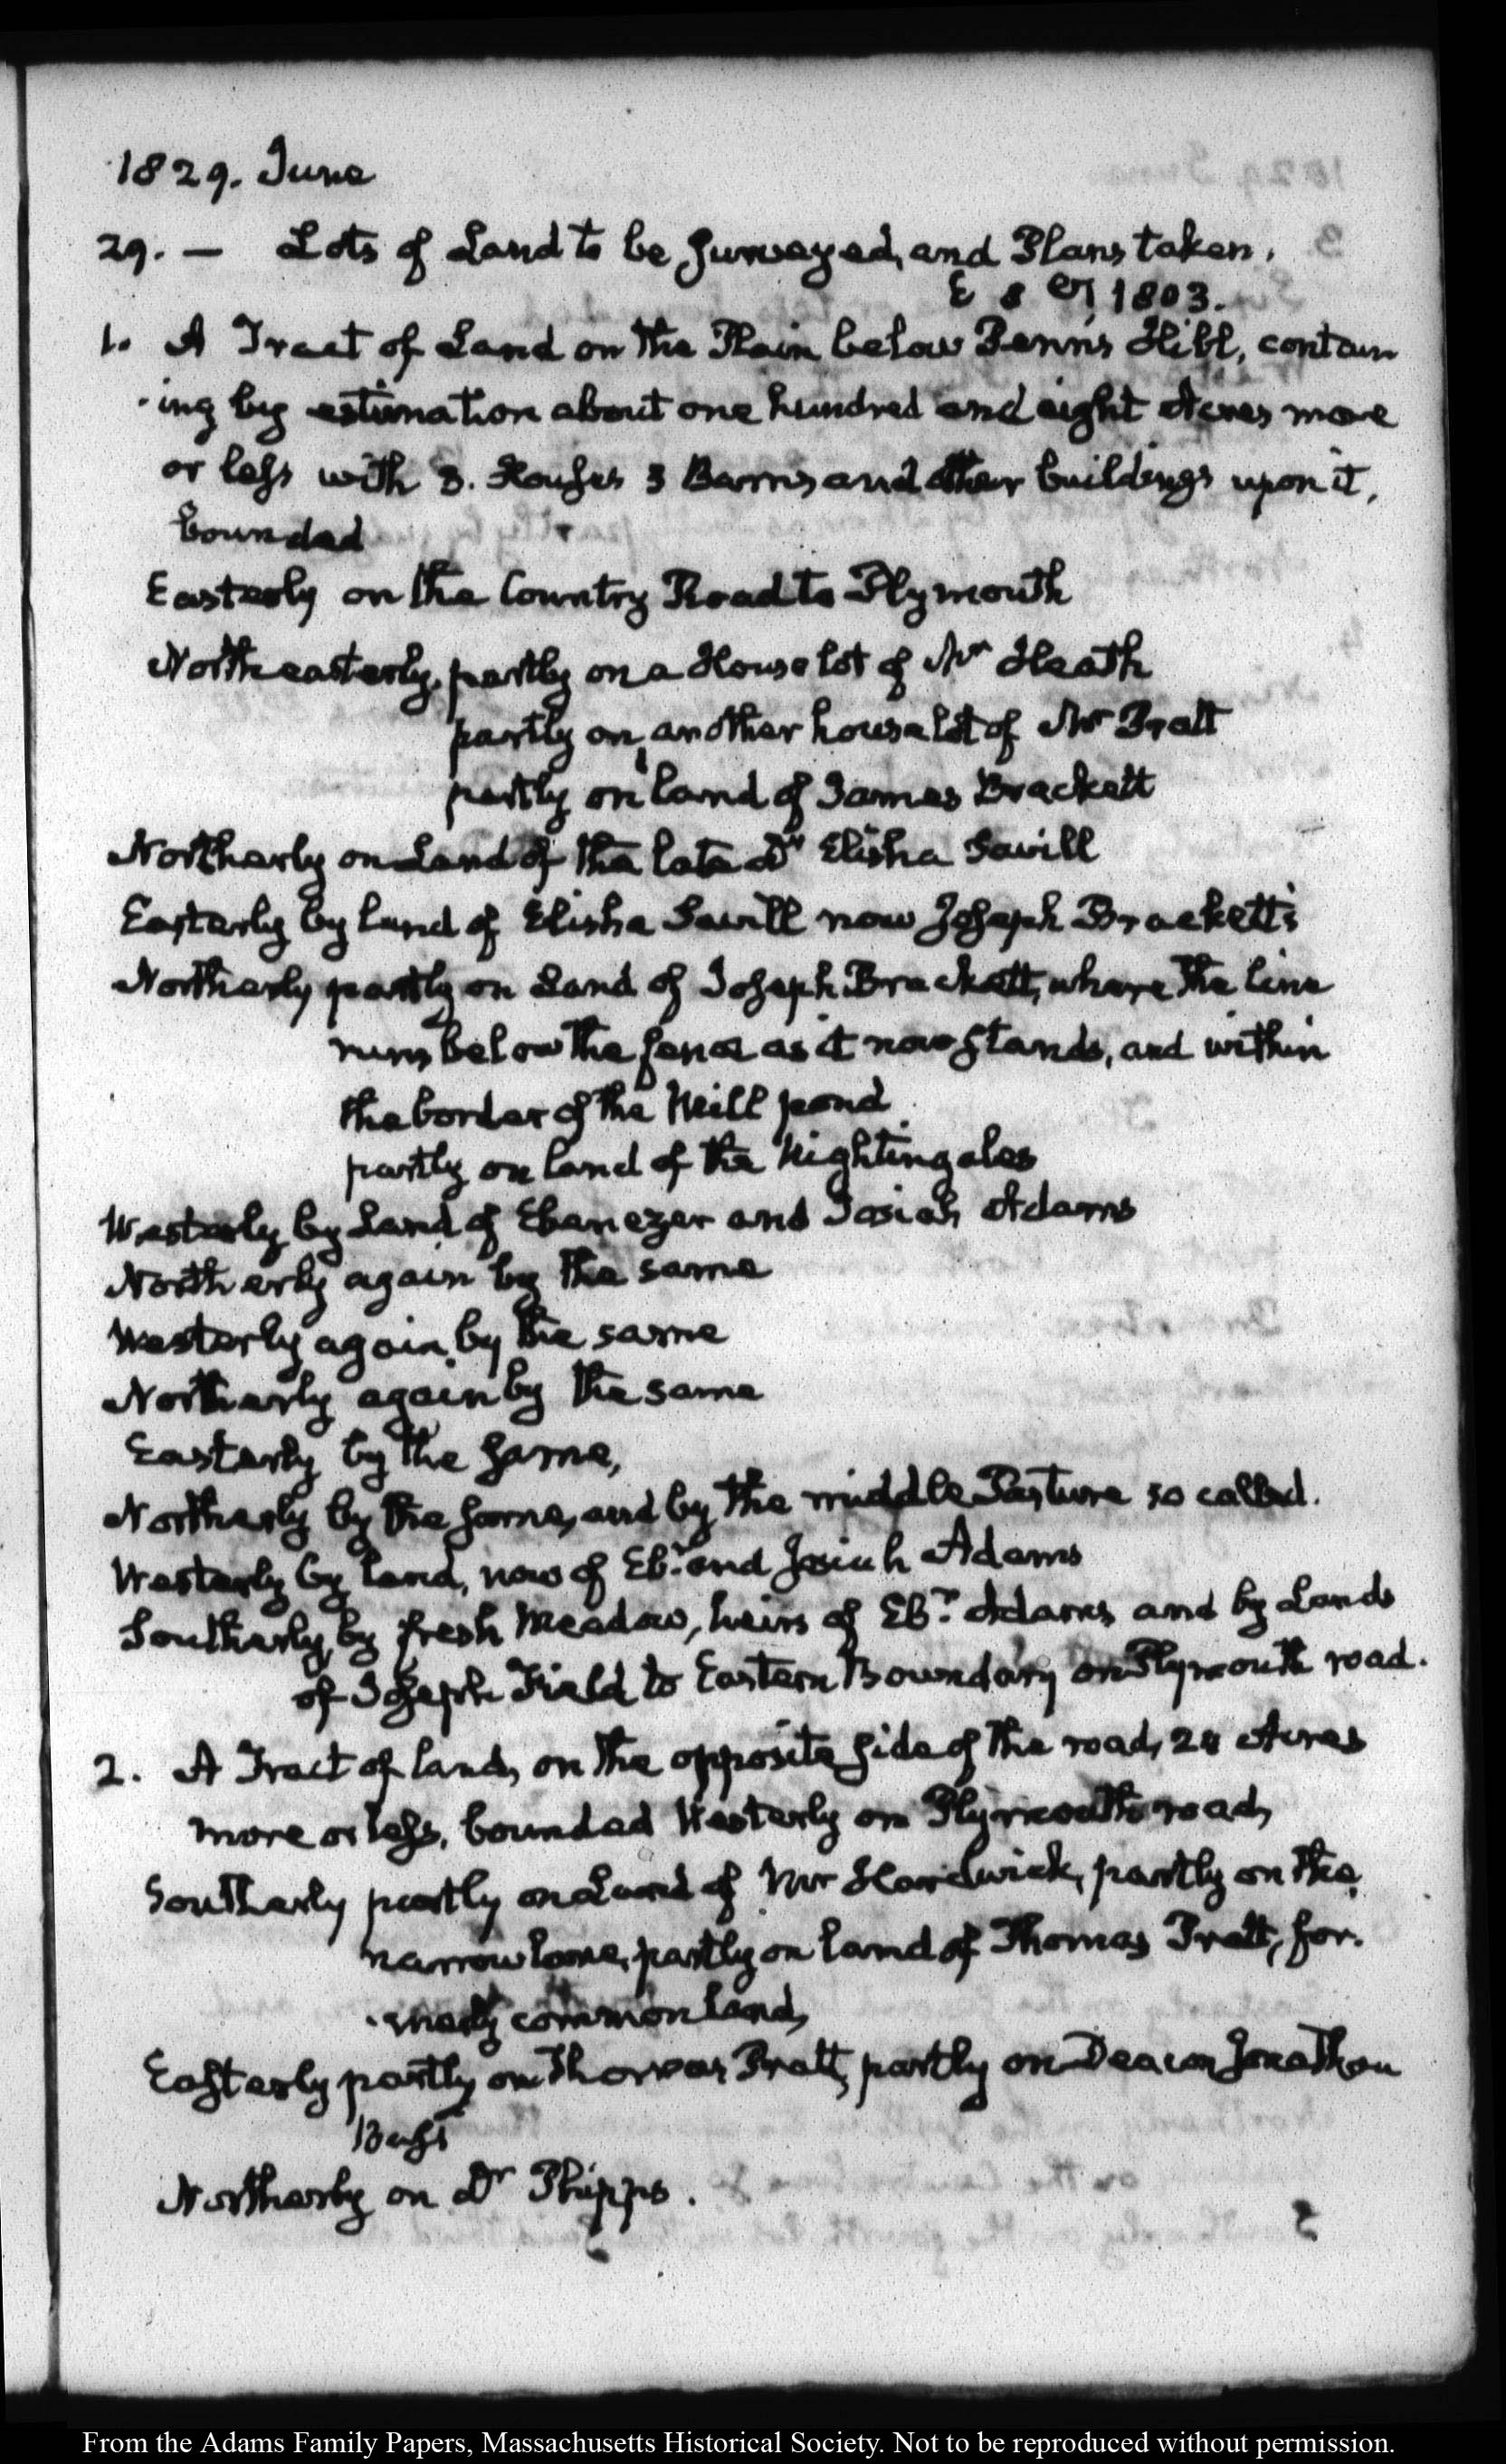 1829. June
29. — Lots of Land to be Surveyed, and Plans taken.
1803.
1. A Tract of Land on the Plain below Penn's Hill, contain
-ing by estimation about one hundred and eight Acres more
or less with 3. Houses 3 Barns and other buildings upon it,
bounded
Easterly on the Country Road to Plymouth
Northeasterly, partly on a House lot of Mr Heath
partly on another house lot of Mr Pratt
partly on land of James Brackett
Northerly on Land of the late Dr Elisha Savill
Easterly by land of Elisha Savill now Joseph Brackett's
Northerly partly on Land of Joseph Brackett, where the line
runs below the fence as it now stands, and within
the border of the Mill pond
partly on land of the Nightingales
Westerly by Land of Ebenezer and Josiah Adams
Northerly again by the same
Westerly again by the same
Northerly again by the same
Easterly by the same,
Northerly by the same, and by the middle Pasture so called.
Westerly by land, now of Ebr. and Josiah Adams
Southerly, by fresh Meadow, heirs of Ebr. Adams and by Lands
of Joseph Field to Eastern Boundary on Plymouth road.
2. A Tract of land, on the opposite side of the road, 28 Acres
more or less, bounded Westerly on Plymouth road,
Southerly partly on Land of Mr Hardwick, partly on the
narrow lane, partly on land of Thomas Pratt, for-
-merly common land,
Easterly partly on Thomas Pratt, partly on Deacon Jonathan
Bass
Northerly on Dr Phipps.
From the Adams Family Papers, Massachusetts Historical Society. Not to be reproduced without permission.